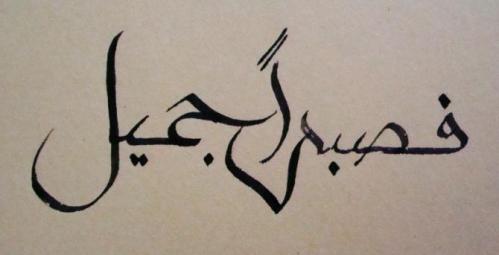 فصبراً جميل